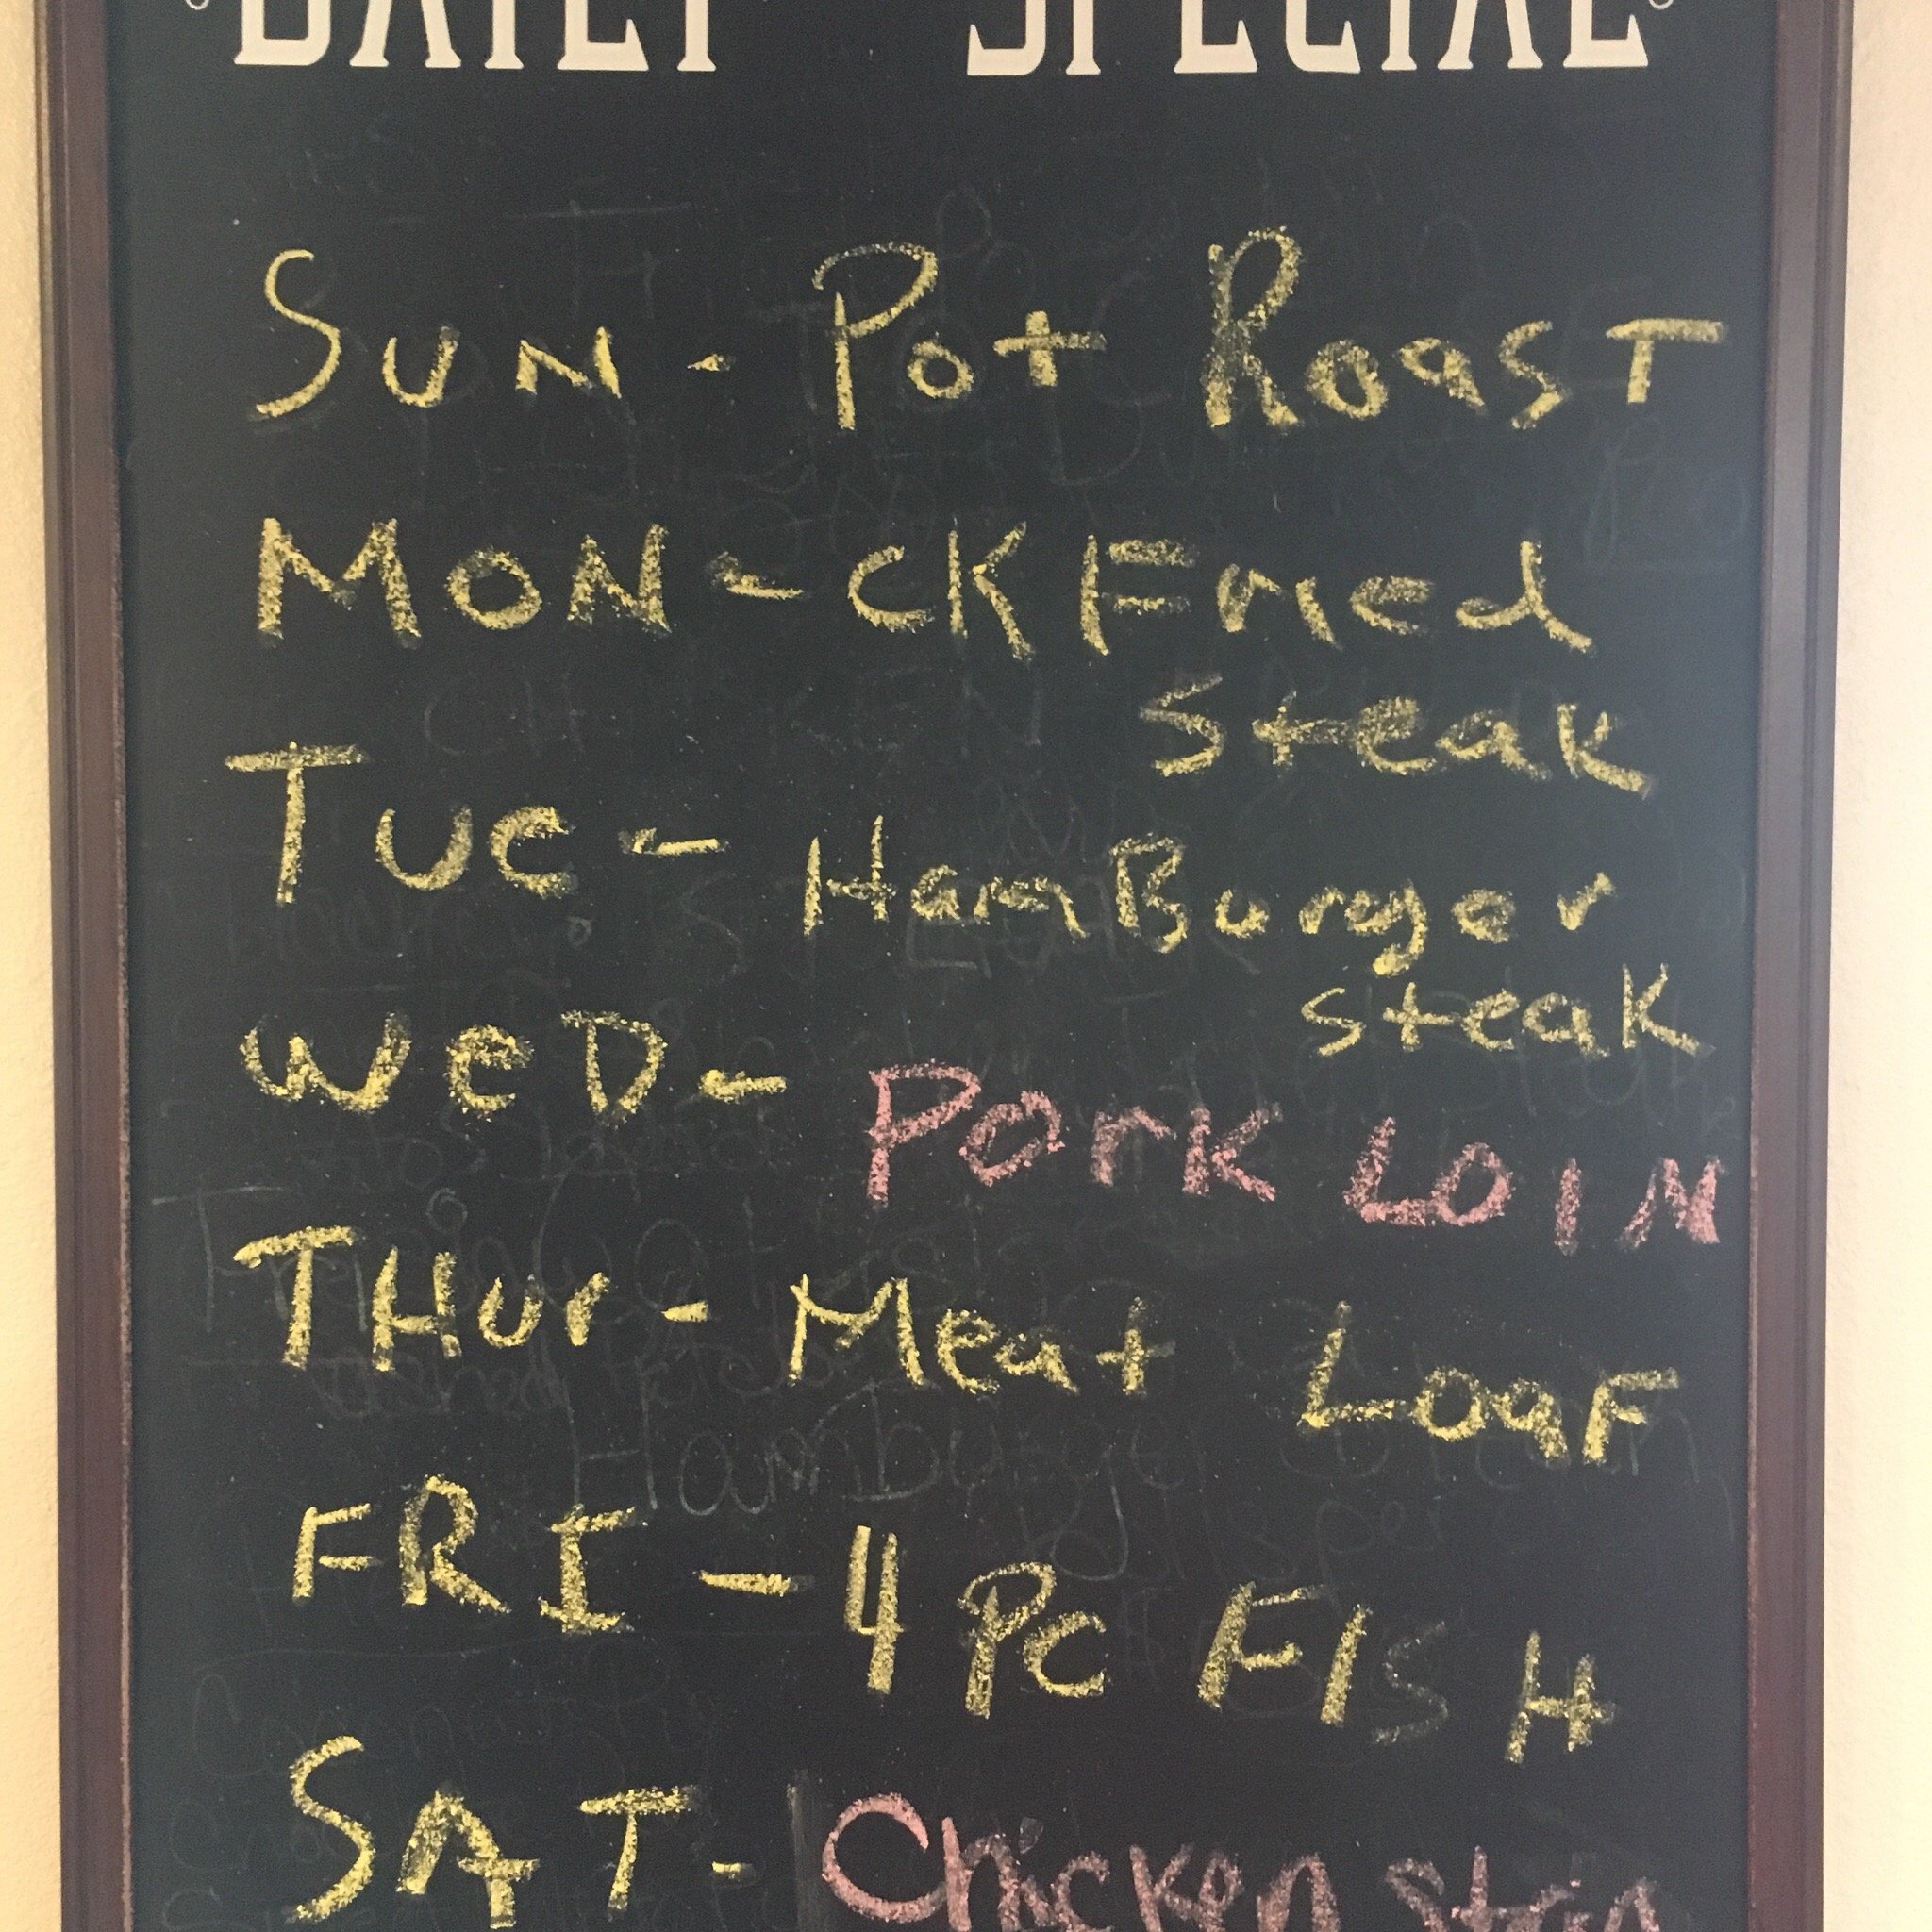 DAILY SPECIAL
SUN - Pot RoasT
MON - CK Fried
Steak
Tue - HamBurger
steak
WeD - Pork LOIN
THur - Meat LoaF
FRI - 4 PC FISH
SAT - Chicken